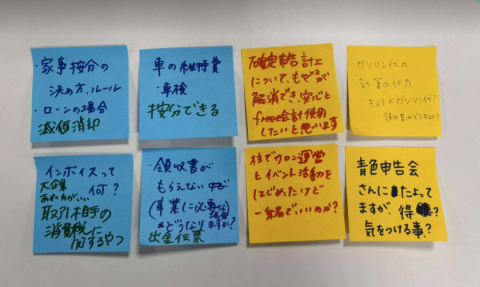 ・家事按分の
決め方、ルール
・ローンの場合
減価消却
車の維持費
・車検
按分できる
確定申告計上
について、もやもやが
解消でき、安心と
freee会計使用
したいと思います
ガソリン代の
計算の仕方
キョリ×ガソリン代?
インボイスって
何?
大企業
あいたがいい
取引相手の
消費税に
関するやつ
・領収書が
もらえない
(事業に必要な場合
どうなりますか?
出金伝票
サロン運営
とイベント活動を
はじめたけど
一緒でいいのか?
青色申告会
さんにたよって
ますが、得?
気をつける事?